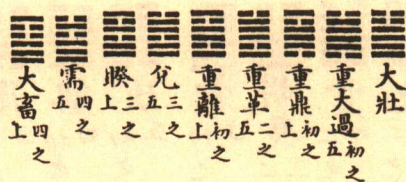 大壯
重大過初之五
重鼎初之上
重革二之五
重離初之上
兌三之五
睽三之上
需四之五
大畜四之上